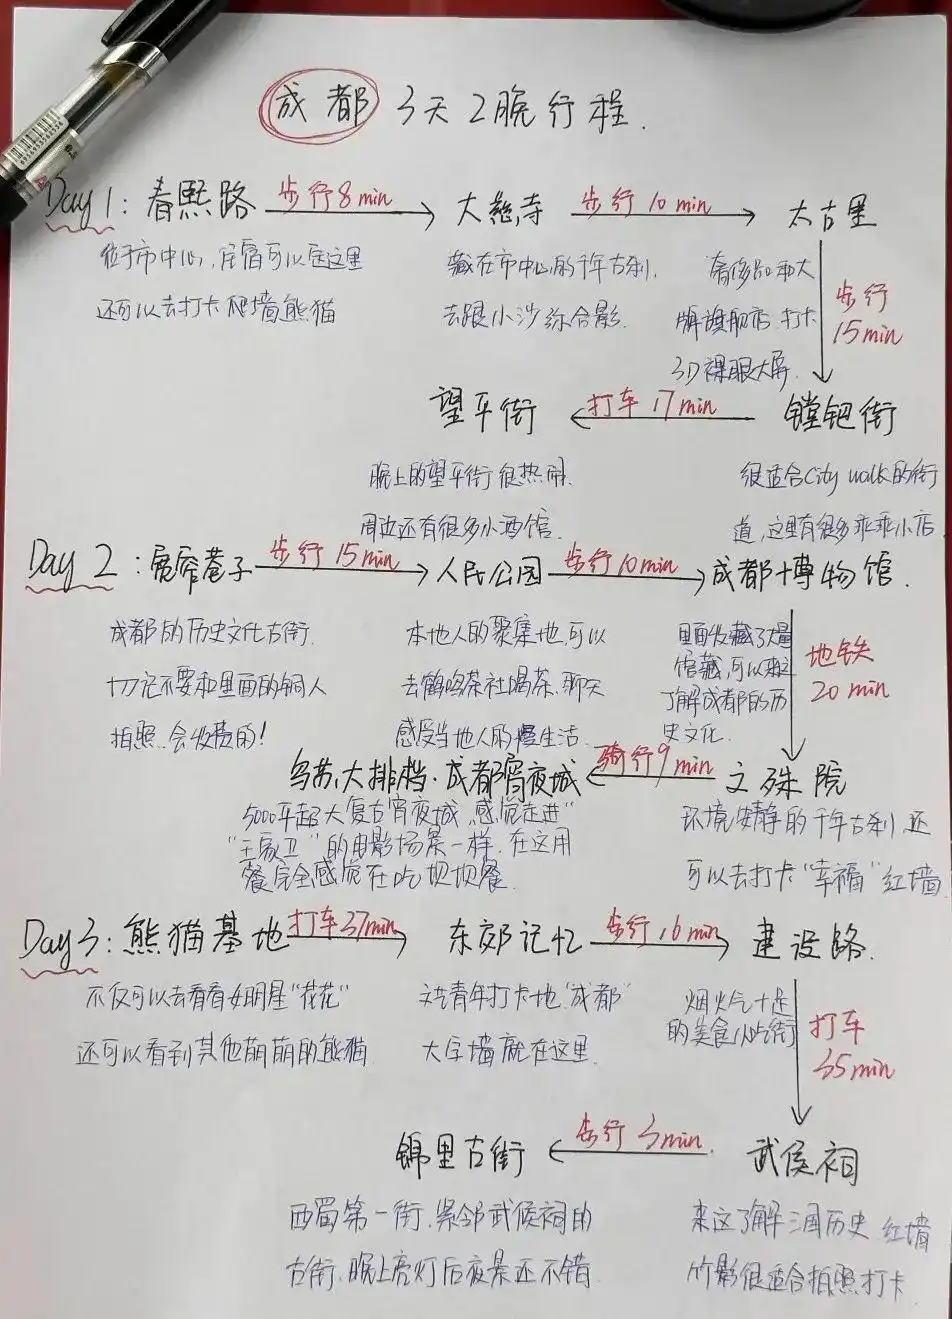 成都 3天2晚行程.
Day 1: 春熙路 步行8min 大慈寺 步行10min 太古里
位于市中心,住宿可以定这里
还可以去打卡爬墙熊猫
藏在市中心的千年古刹,
去跟小沙弥合影.
奢侈品和大
牌旗舰店 打卡
3D裸眼大屏.
步行
15min
望平街 打车17min 镗钯街
晚上的望平街很热闹.
周边还有很多小酒馆.
很适合City walk的街
道,这里有很多乖乖小店
Day 2: 宽窄巷子 步行15min 人民公园 步行10min 成都博物馆.
成都的历史文化古街.
切记不要和里面的铜人
拍照.会收费的!
本地人的聚集地,可以
去鹤鸣茶社喝茶.聊天
感受当地人的慢生活.
里面收藏了大量
馆藏,可以来这
了解成都的历
史文化.
地铁
20min
乌苏大排档·成都宵夜城 骑行9min 文殊院
5000平超大复古宵夜城,感觉走进"
"王家卫"的电影场景一样.在这用
餐完全感觉在吃坝坝餐.
环境安静的千年古刹.还
可以去打卡"幸福"红墙
Day3: 熊猫基地 打车37min 东郊记忆 步行16min 建设路.
不仅可以去看看女明星"花花"
还可以看到其他萌萌的熊猫
文艺青年打卡地"成都"
大字墙就在这里.
烟火气十足
的美食小吃街
打车
35min
锦里古街 步行3min. 武侯祠
西蜀第一街.紧邻武侯祠的
古街.晚上亮灯后夜景还不错.
来这了解三国历史 红墙
竹影很适合拍照打卡.